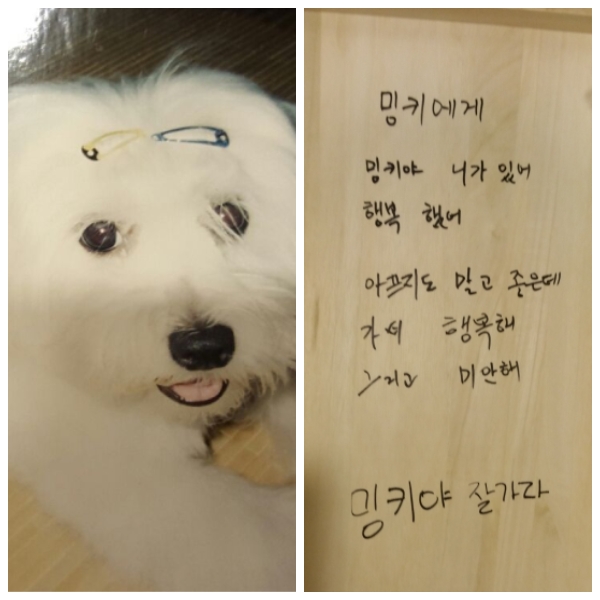 밍키에게
밍키야 니가 있어
행복 했어
아프지도 말고 좋은데
가서 행복해
그리고 미안해
밍키야 잘가라